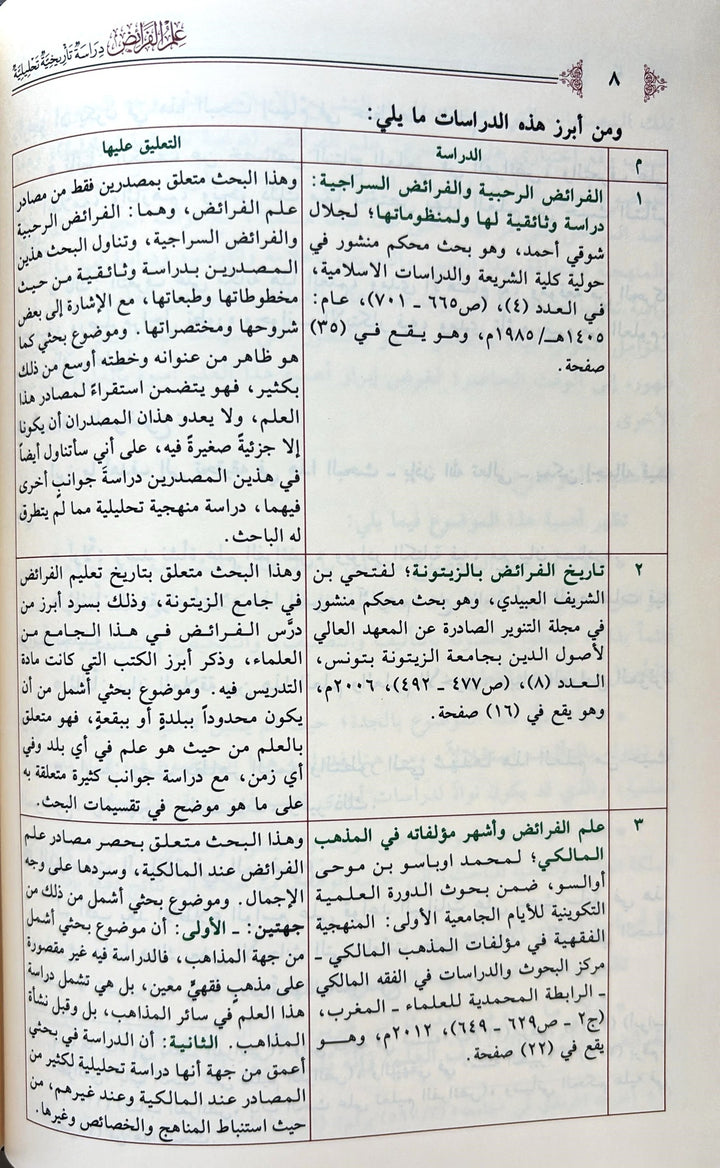 علم الفرائض دراسة تأريخية تحليلية
٨
ومن أبرز هذه الدراسات ما يلي:
م
الدراسة
التعليق عليها
١
الفرائض الرحبية والفرائض السراجية:
دراسة وثائقية لها ولمنظوماتها؛ لجلال
شوقي أحمد، وهو بحث محكم منشور في
حولية كلية الشريعة والدراسات الاسلامية،
في العدد (٤)، (ص٦٦٥ - ٧٠١)، عام:
١٤٠٥هـ/ ١٩٨٥م، وهو يقع في (٣٥)
صفحة.
وهذا البحث متعلق بمصدرين فقط من مصادر
علم الفرائض، وهما: الفرائض الرحبية
والفرائض السراجية، وتناول البحث هذين
المصدرين بدراسة وثائقية من حيث
مخطوطاتها وطبعاتها، مع الإشارة إلى بعض
شروحها ومختصراتها. وموضوع بحثي كما
هو ظاهر من عنوانه وخطته أوسع من ذلك
بكثير، فهو يتضمن استقراءً لمصادر هذا
العلم، ولا يعدو هذان المصدران أن يكونا
إلا جزئيةً صغيرةً فيه، على أني سأتناول أيضاً
في هذين المصدرين دراسةَ جوانبٍ أخرى
فيهما، دراسة منهجية تحليلية مما لم يتطرق
له الباحث.
٢
تاريخ الفرائض بالزيتونة؛ لفتحي بن
الشريف العبيدي، وهو بحث محكم منشور
في مجلة التنوير الصادرة عن المعهد العالي
لأصول الدين بجامعة الزيتونة بتونس،
العدد (٨)، (ص٤٧٧ - ٤٩٢)، ٢٠٠٦م،
وهو يقع في (١٦) صفحة.
وهذا البحث متعلق بتاريخ تعليم الفرائض
في جامع الزيتونة، وذلك بسرد أبرز من
درَّس الفرائض في هذا الجامع من
العلماء، وذكر أبرز الكتب التي كانت مادة
التدريس فيه. وموضوع بحثي أشمل من أن
يكون محدوداً ببلدةٍ أو ببقعةٍ، فهو متعلق
بالعلم من حيث هو علم في أي بلد وفي
أي زمن، مع دراسة جوانب كثيرة متعلقة به
على ما هو موضح في تقسيمات البحث.
٣
علم الفرائض وأشهر مؤلفاته في المذهب
المالكي؛ لمحمد اوباسو بن موحى
أوالسو، ضمن بحوث الدورة العلمية
التكوينية للأيام الجامعية الأولى: المنهجية
الفقهية في مؤلفات المذهب المالكي -
مركز البحوث والدراسات في الفقه المالكي
- الرابطة المحمدية للعلماء - المغرب،
(ج٢ - ص٦٢٩ - ٦٤٩)، ٢٠١٢م، وهو
يقع في (٢٢) صفحة.
وهذا البحث متعلق بحصر مصادر علم
الفرائض عند المالكية، وسردها على وجه
الإجمال. وموضوع بحثي أشمل من ذلك من
جهتين: - الأولى: أن موضوع بحثي أشمل
من جهة المذاهب، فالدراسة فيه غير مقصورة
على مذهبٍ فقهيٍّ معين، بل هي تشمل دراسة
هذا العلم في سائر المذاهب، بل وقبل نشأة
المذاهب. الثانية: أن الدراسة في بحثي
أعمق من جهة أنها دراسة تحليلية لكثير من
المصادر عند المالكية وعند غيرهم، من
حيث استنباط المناهج والخصائص وغيرها.